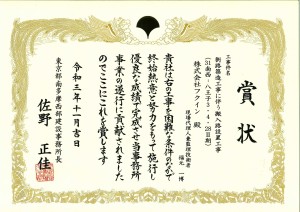 賞状
工事件名
街路築造工事に伴う搬入路設置工事
(31南西-八王子3・4・28日野)
株式会社フクイン 殿
現場代理人兼監理技術者
福元 一博
貴社は右の工事を困難な条件のなかで
終始熱意と努力をもって施行し
優良な成績で完成させ当事務所
事業の遂行に貢献されました
のでここにこれを賞します
令和三年十一月吉日
東京都南多摩西部建設事務所長
佐野 正佳